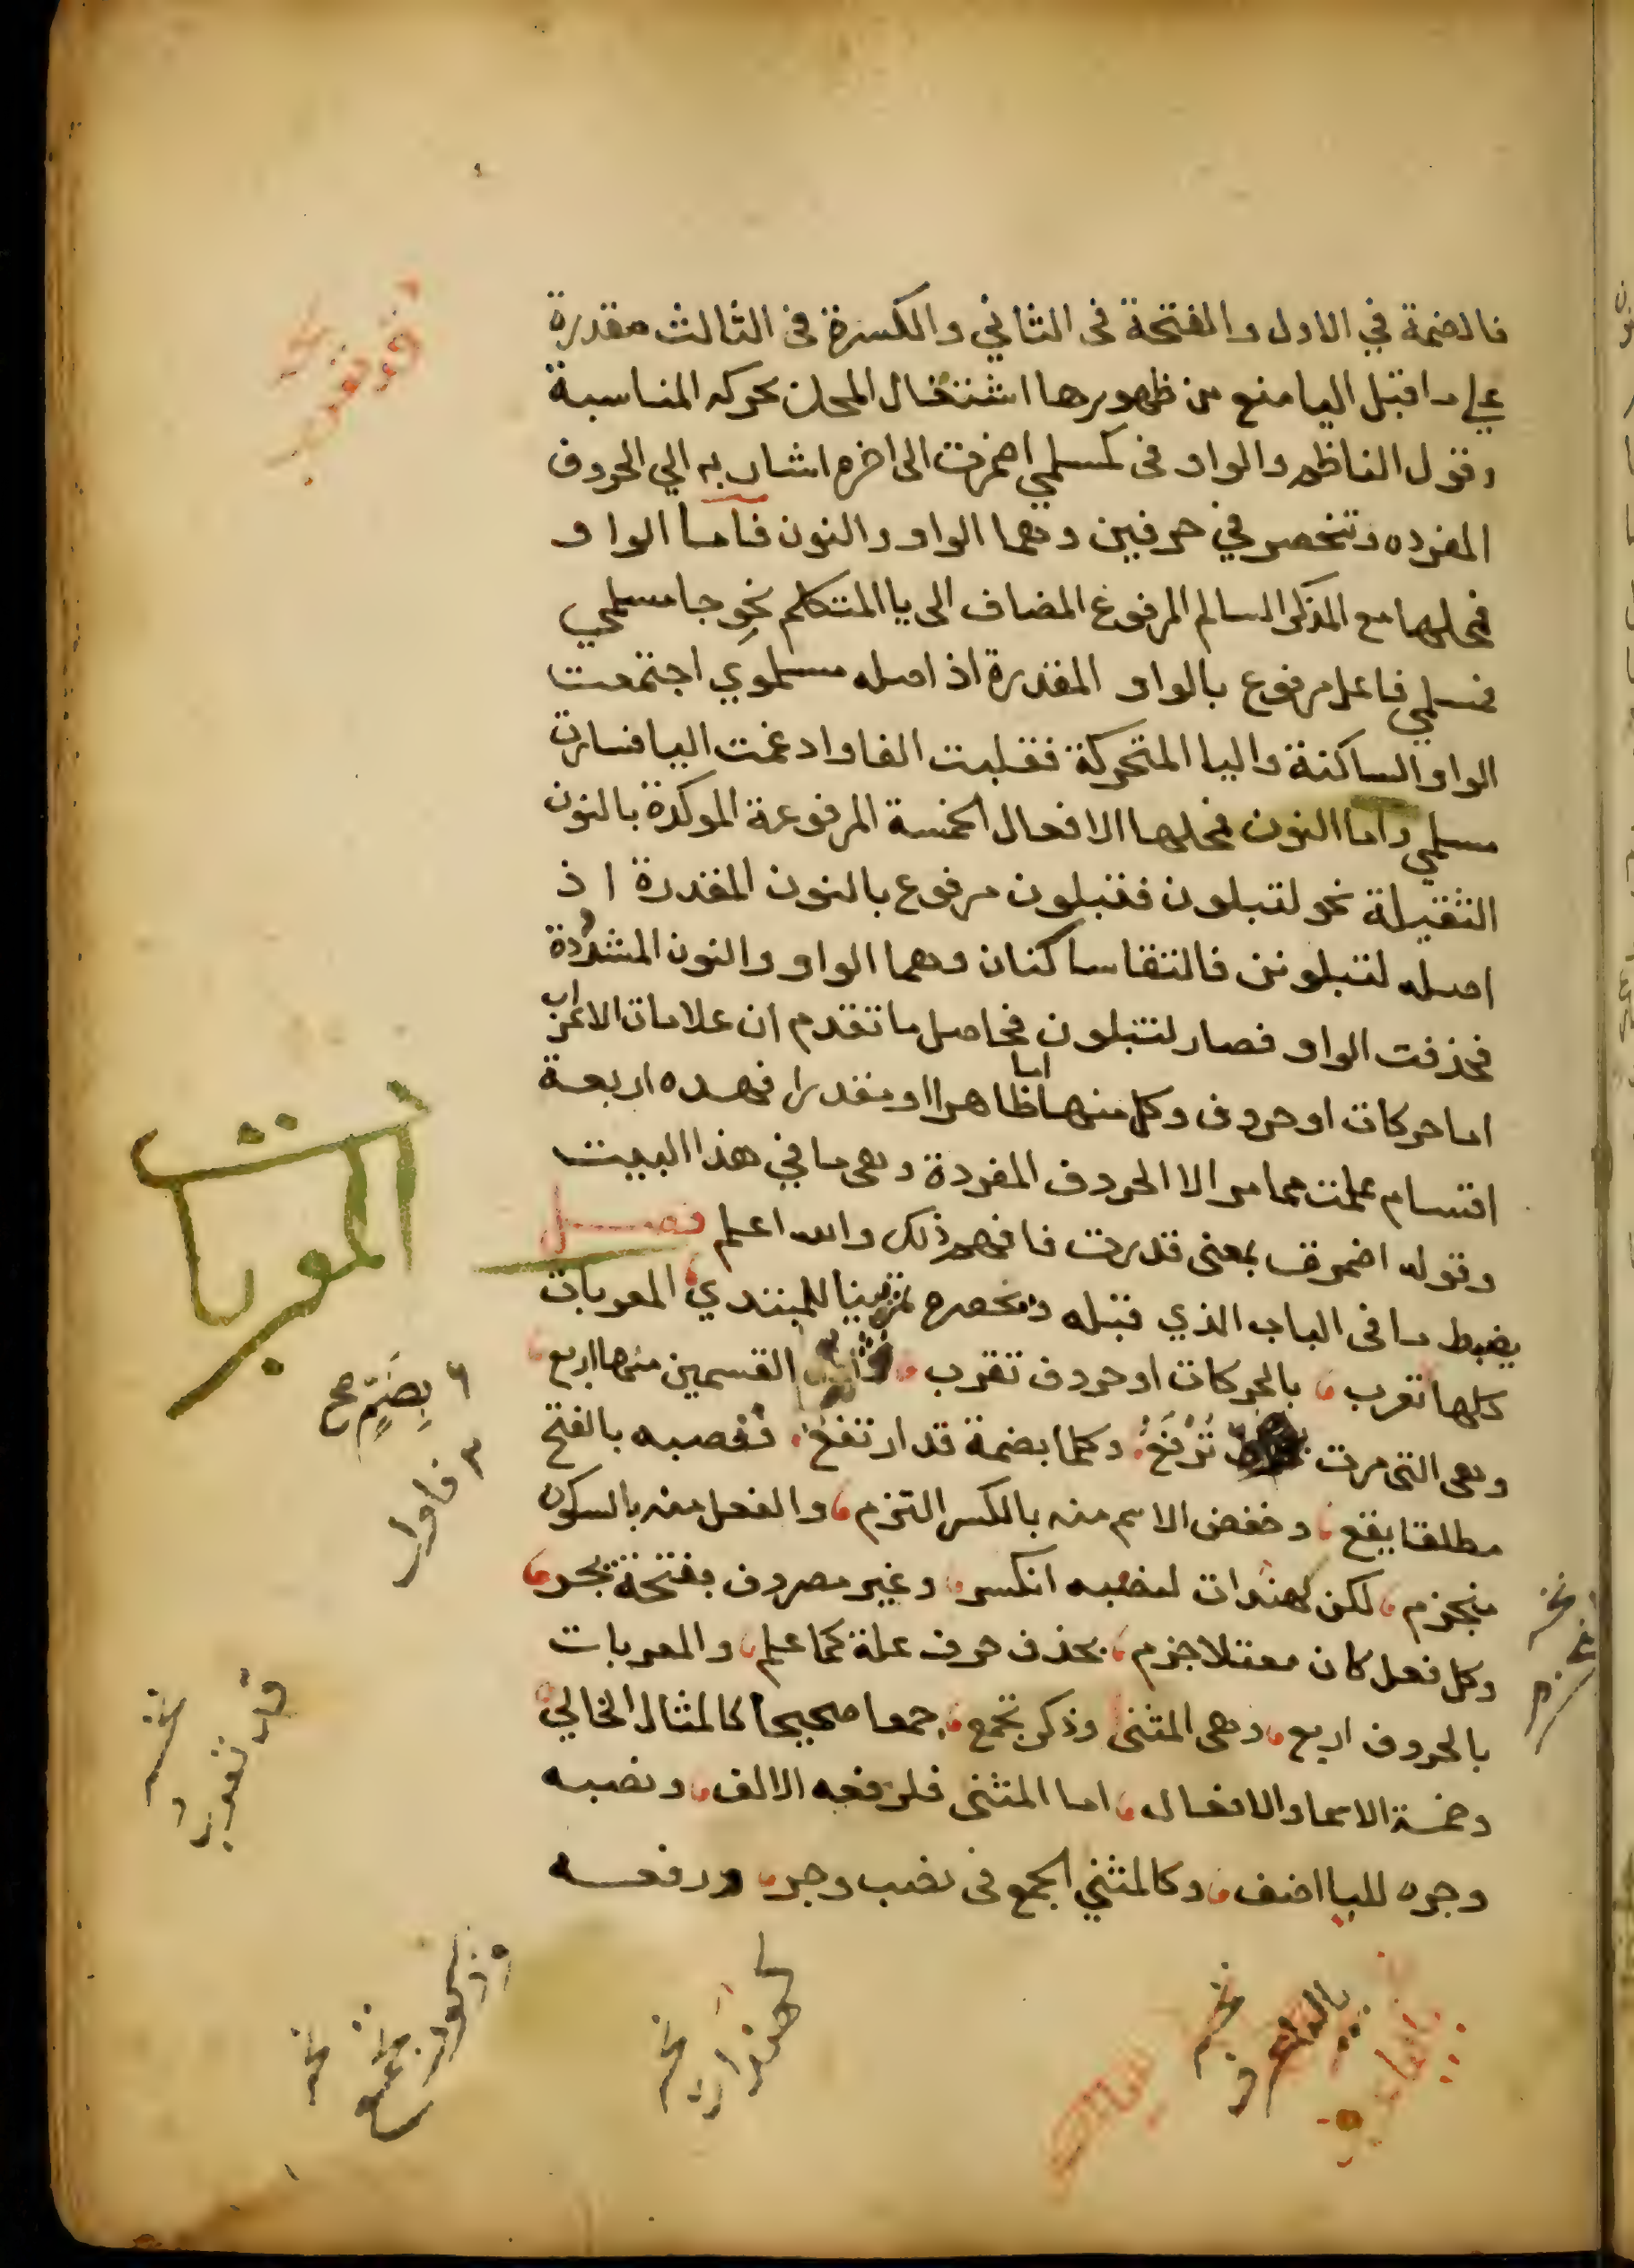 فالضمة في الاول والفتحة فى الثاني والكسرة فى الثالث مقدرة
على ماقبل اليا منع من ظهورها اشتغال المحل بحركه المناسبة
وقول الناظم والواو فى كمسلمي اضمرت الى اخره اشار به الي الحروف
المفرده وتنحصر في حرفين وهما الواو والنون فاما الواو
فمحلها جمع المذكر السالم المرفوع المضاف الى يا المتكلم نحو جا مسلمي
فمسلمي فاعل مرفوع بالواو المقدرة اذ اصله مسلموي اجتمعت
الواو الساكنة واليا المتحركة فقلبت الفا وادغمت اليا فسارت
مسلمي واما النون فمحلها الافعال الخمسة المرفوعة الموكدة بالنون
الثقيلة نحو لتبلون فتبلون مرفوع بالنون المقدرة اذ
اصله لتبلونن فالتقا ساكنان وهما الواو والنون المشددة
فحذفت الواو فصار لتبلون فحاصل ما تقدم ان علامات الاعراب
اما حركات او حروف وكل منها اما ظاهرا او مقدرا فهده اربعة
اقسام علمت مما مر الا الحروف المفردة وهى ما في هذا البيت
وقوله اضمرت بمعنى قدرت فافهم ذلك والله اعلم فصل
يضبط ما فى الباب الذي قبله ويحصره تمرينا للمبتدي المعربات
كلها تعرب بالحركات او حروف تقرب القسمين منها اربع
وهى التى مرت ترفع وكلما بضمة قد ارتفع فنصبه بالفتح
مطلقا يقع وخفض الاسم منه بالكسر التزم والفعل منه بالسكون
منجزم لكن كهندات لنصبه انكسر وغير مصروف بفتحة يجر
وكل فعل كان معتلا جزم بحذف حرف علة كما علم والمعربات
بالحروف اربع وهى المثنى وذكر تجمع جمعا صحيحا كالمثال الخالي
وخمسة الاسما والافعال اما المثنى فلرفعه الالف ونصبه
وجره لليا اضف وكالمثني الجمع فى نصب وجر ورفعه
المعربات
بضم صح
فاول
نخه
كهندات
نخه
وذكور تجمع
نخه